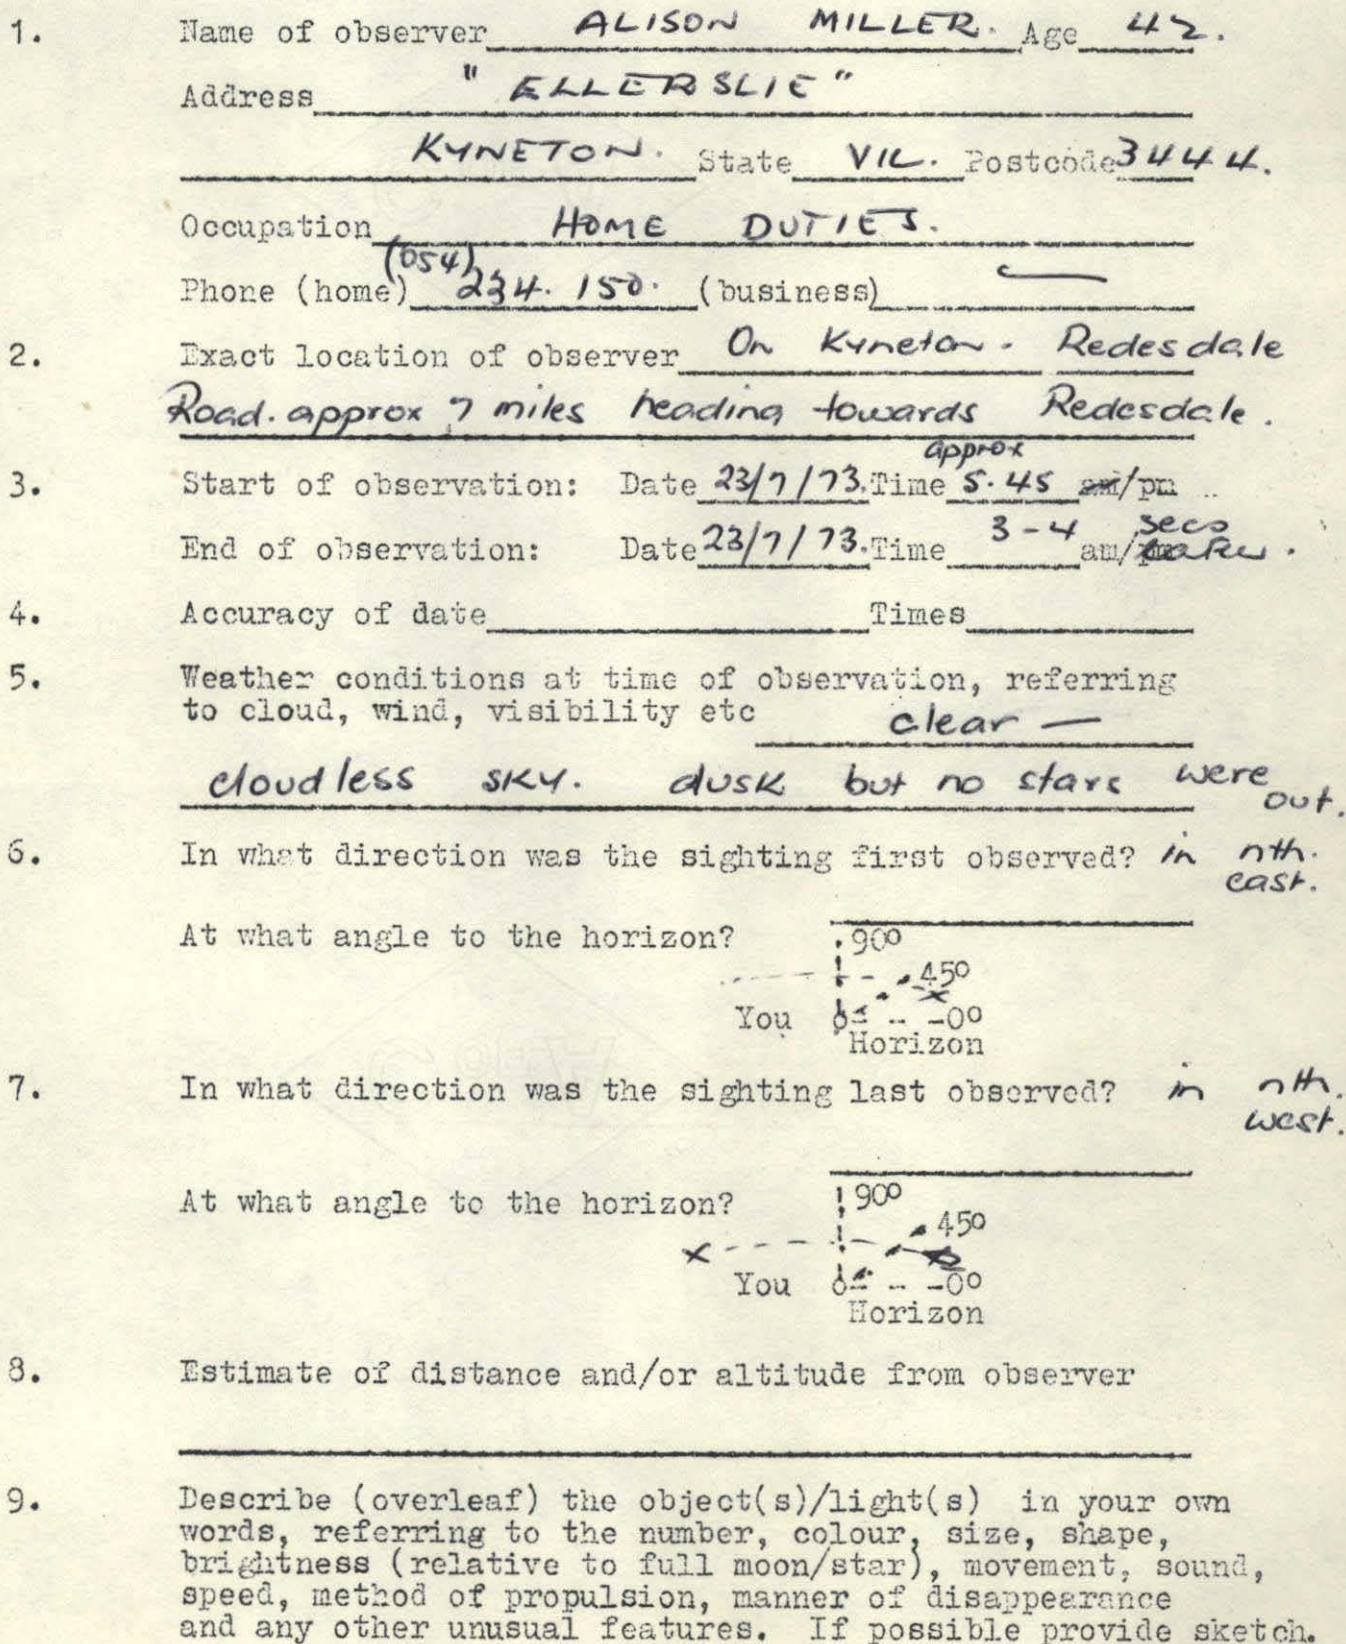 1. Name of observer ALISON MILLER. Age 42.
Address "ELLERSLIE"
KYNETON. State VIC. Postcode 3444.
Occupation HOME DUTIES.
(054)
Phone (home) 234.150. (business) —
2. Exact location of observer On Kyneton - Redesdale
Road. approx 7 miles heading towards Redesdale.
approx
3. Start of observation: Date 23/7/73. Time 5.45 am/pm
End of observation: Date 23/7/73. Time 3-4 secs am/
4. Accuracy of date Times
5. Weather conditions at time of observation, referring
to cloud, wind, visibility etc clear —
cloudless sky. dusk but no stars were out.
6. In what direction was the sighting first observed? in nth.
east.
At what angle to the horizon? 90º
45º
You -0º
Horizon
7. In what direction was the sighting last observed? in nth.
west.
At what angle to the horizon? 90º
45º
x
You -0º
Horizon
8. Estimate of distance and/or altitude from observer
9. Describe (overleaf) the object(s)/light(s) in your own
words, referring to the number, colour, size, shape,
brightness (relative to full moon/star), movement, sound,
speed, method of propulsion, manner of disappearance
and any other unusual features. If possible provide sketch.